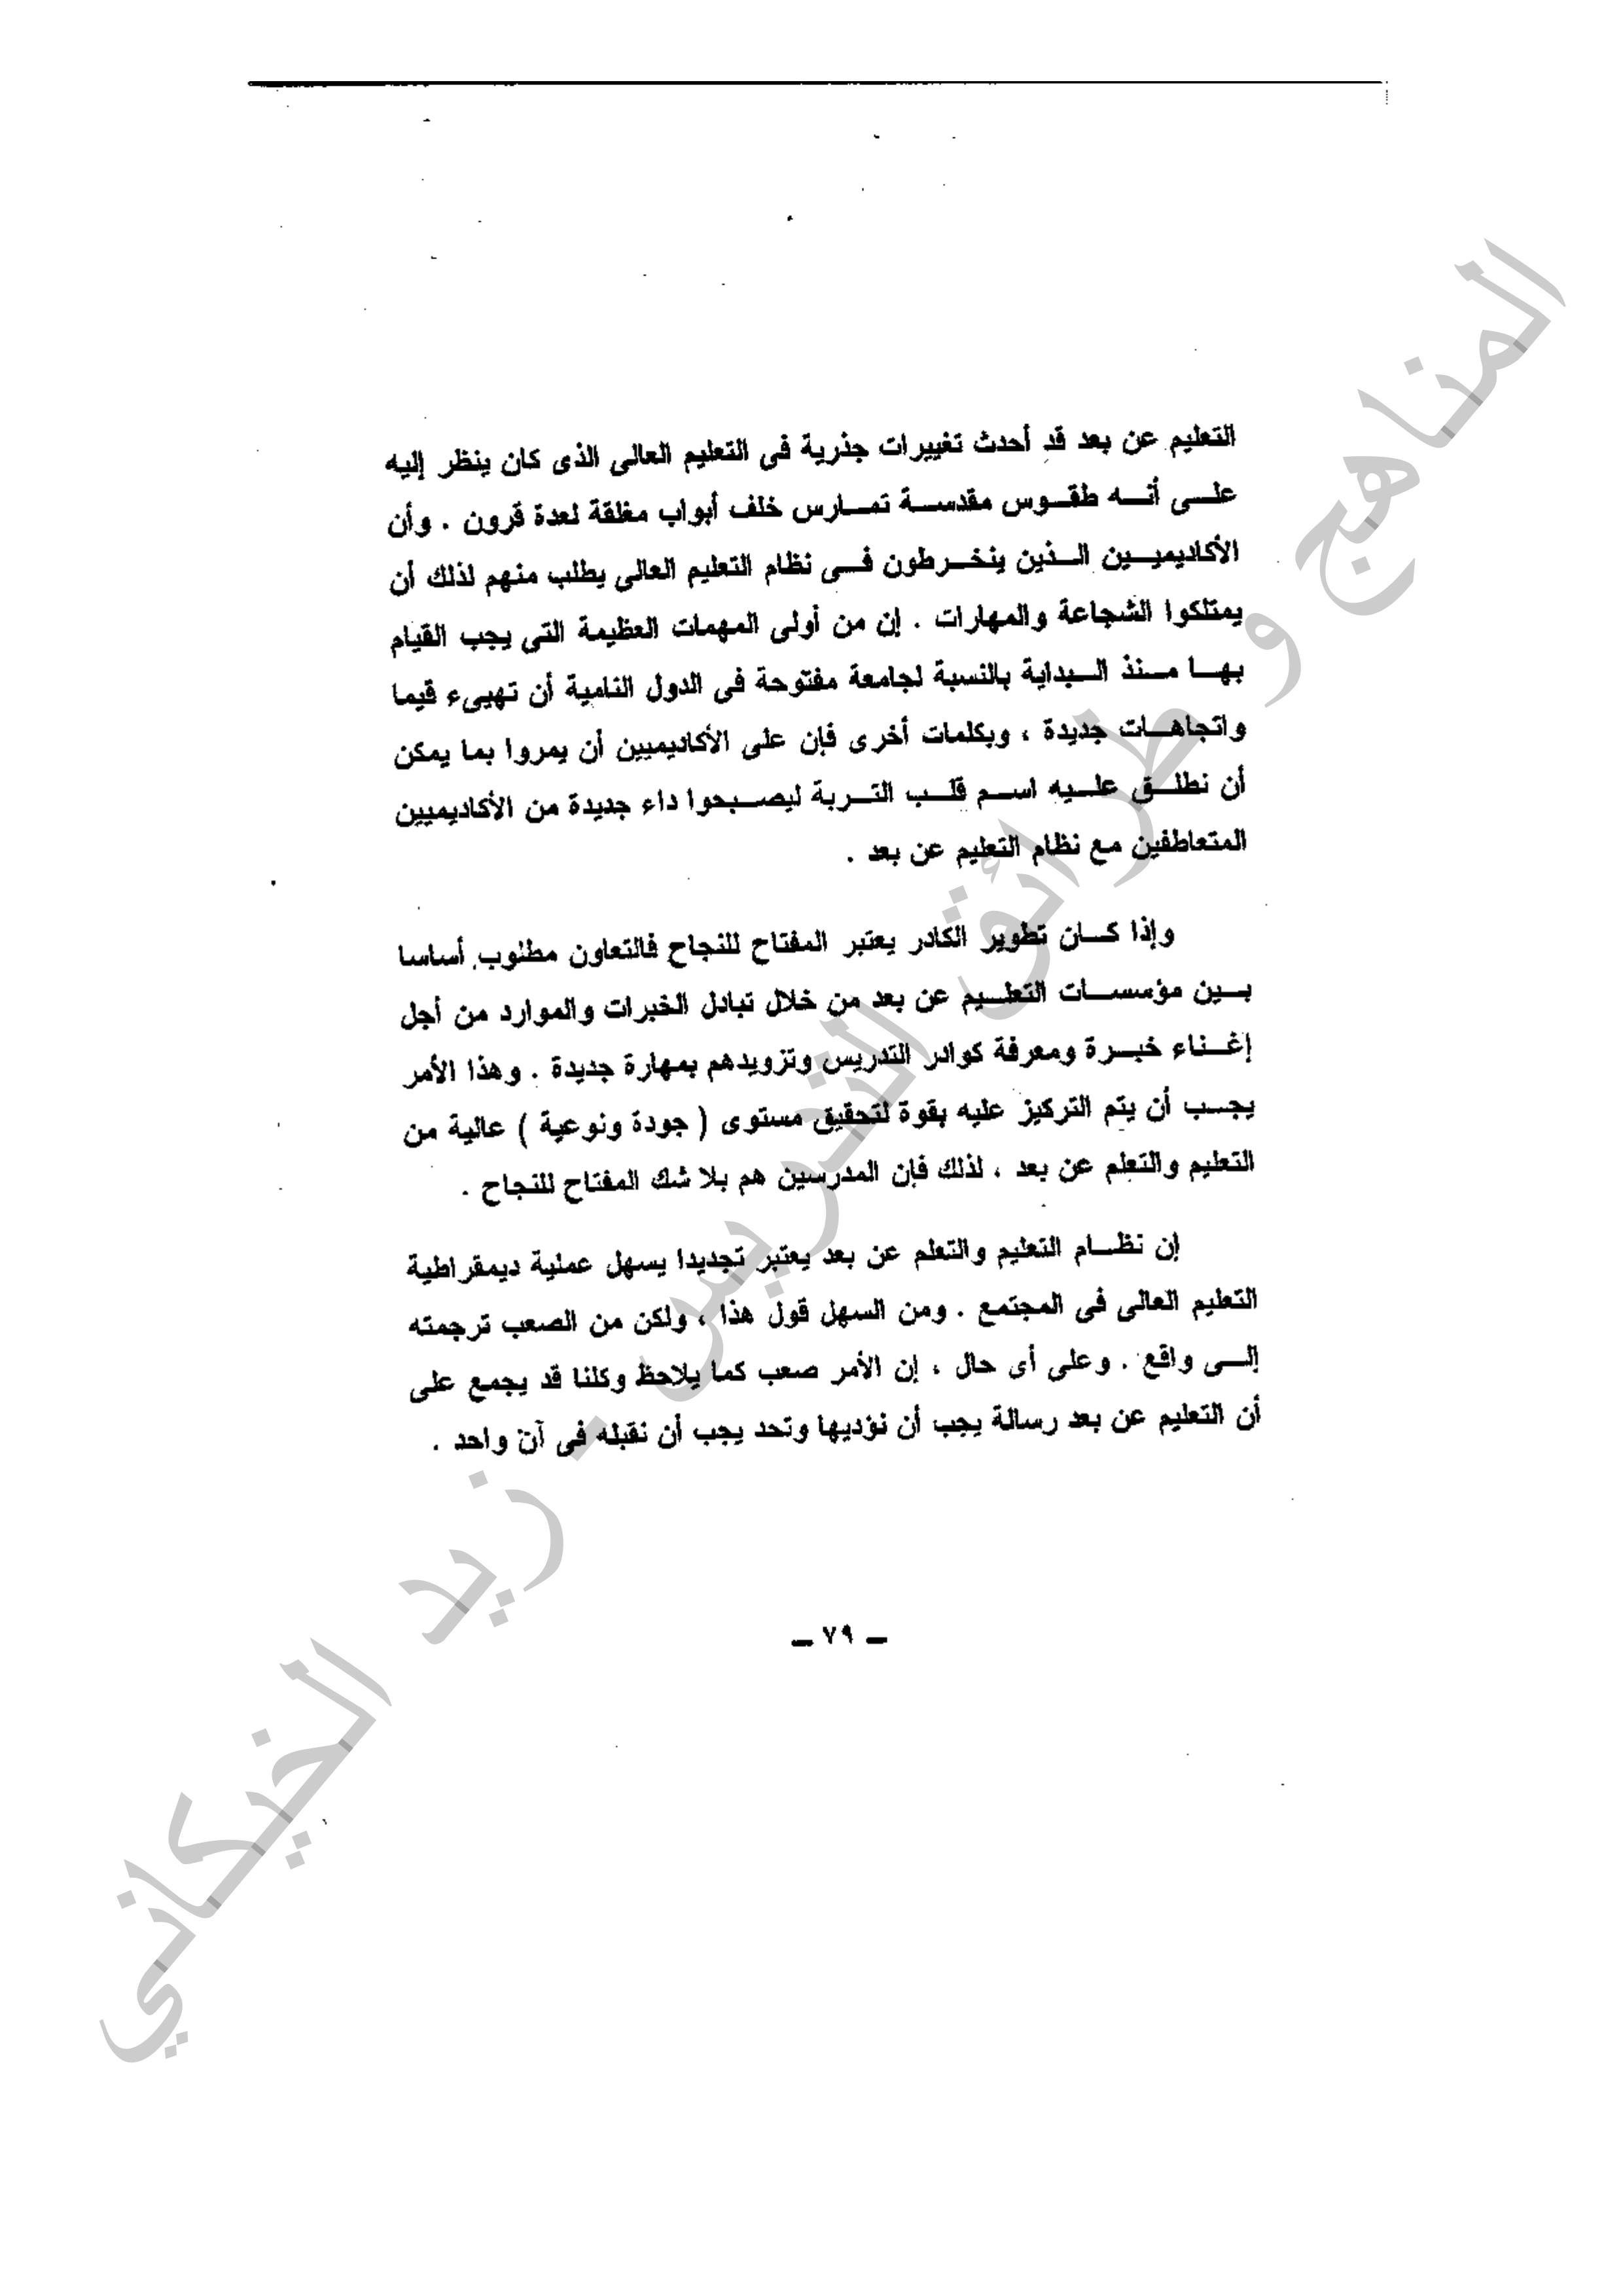 التعليم عن بعد قد أحدث تغييرات جذرية فى التعليم العالى الذى كان ينظر إليه
على أنه طقوس مقدسة تمارس خلف أبواب مغلقة لعدة قرون . وأن
الأكاديميين الذين ينخرطون فى نظام التعليم العالى يطلب منهم لذلك أن
يمتلكوا الشجاعة والمهارات . إن من أولى المهمات العظيمة التى يجب القيام
بها منذ البداية بالنسبة لجامعة مفتوحة فى الدول النامية أن تهيىء قيما
واتجاهات جديدة ، وبكلمات أخرى فإن على الأكاديميين أن يمروا بما يمكن
أن نطلق عليه اسم قلب التربة ليصبحوا داء جديدة من الأكاديميين
المتعاطفين مع نظام التعليم عن بعد .
وإذا كان تطوير الكادر يعتبر المفتاح للنجاح فالتعاون مطلوب أساسا
بين مؤسسات التعليم عن بعد من خلال تبادل الخبرات والموارد من أجل
إغناء خبرة ومعرفة كوادر التدريس وتزويدهم بمهارة جديدة . وهذا الأمر
يجب أن يتم التركيز عليه بقوة لتحقيق مستوى ( جودة ونوعية ) عالية من
التعليم والتعلم عن بعد ، لذلك فإن المدرسين هم بلا شك المفتاح للنجاح .
إن نظام التعليم والتعلم عن بعد يعتبر تجديدا يسهل عملية ديمقراطية
التعليم العالى فى المجتمع . ومن السهل قول هذا ، ولكن من الصعب ترجمته
إلى واقع . وعلى أى حال ، إن الأمر صعب كما يلاحظ وكلنا قد يجمع على
أن التعليم عن بعد رسالة يجب أن نؤديها وتحد يجب أن نقبله فى آن واحد .
ــ ٧٩ ــ
المناهج و طرائق التدريس - زيد الخيكاني